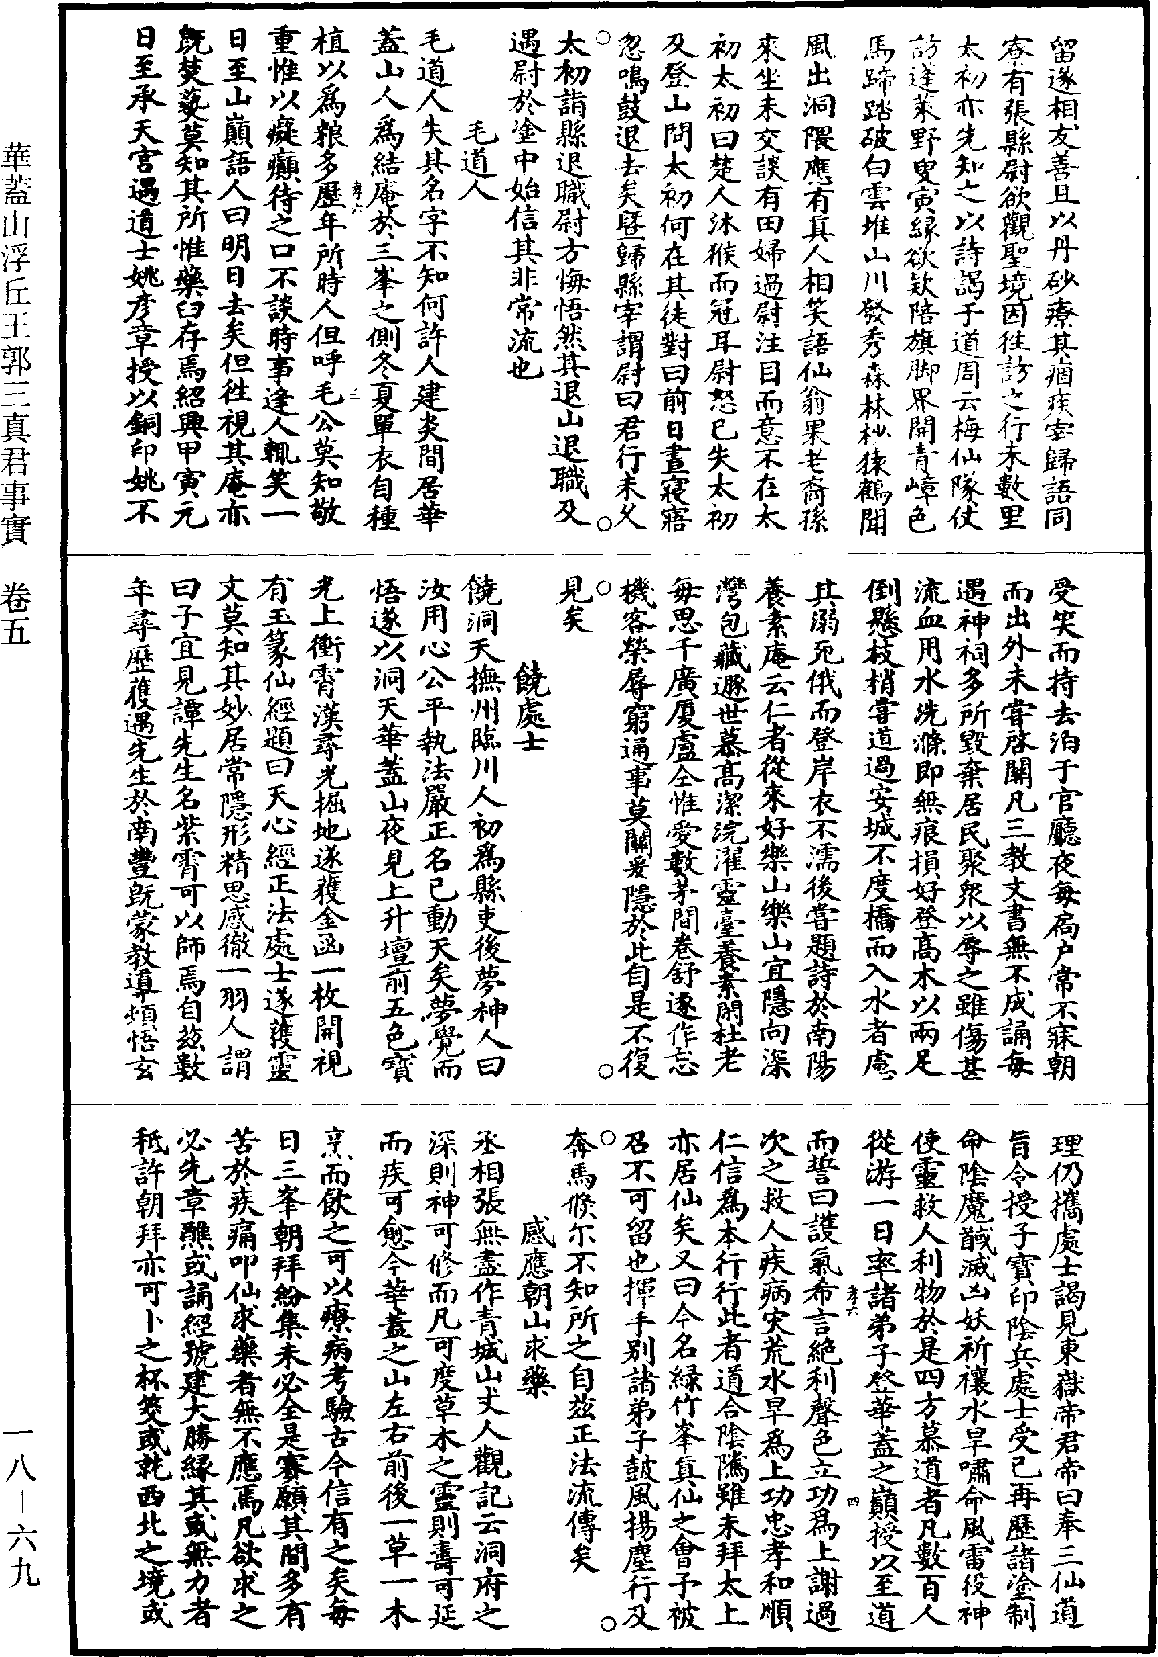 留遂相友善且以丹砂療其痼疾宰歸語同
寮有張縣尉欲觀聖境因往訪之行未數里
太初亦先知之以詩謁于道周云梅仙隊仗
訪蓬萊野叟寅緣欲欵陪旗脚界開青嶂色
馬蹄踏破白雲堆山川發秀森林杪猿鶴聞
風出洞隈應有真人相笑語仙翁果老裔孫
來坐未交談有田婦過尉注目而意不在太
初太初曰楚人沐猴而冠耳尉怒已失太初
及登山問太初何在其徒對曰前日晝寢寤
忽鳴鼓退去矣暨歸縣宰謂尉曰君行未久
太初詣縣退職尉方悔悟然其退山退職及
遇尉於塗中始信其非常流也
毛道人
毛道人失其名字不知何許人建炎間居華
蓋山人為結庵於三峯之側冬夏單衣自種
植以為粮多歷年所時人但呼毛公莫知敬
重惟以癡癲待之口不談時事逢人輒笑一
日至山巔語人曰明日去矣但往視其庵亦
既焚爇莫知其所惟藥臼存焉紹興甲寅元
日至承天宮遇道士姚彥章授以銅印姚不
受笑而持去泊于官廳夜每扃户常不寐朝
而出外未嘗啓關凡三教文書無不成誦每
遇神祠多所毀棄居民聚衆以辱之雖傷甚
流血用水洗滌即無痕損好登高木以兩足
倒懸枝梢嘗道過安城不度橋而入水者慮
其溺死俄而登岸衣不濡後嘗題詩於南陽
養素庵云仁者從來好樂山樂山宜隱向深
灣包藏遯世慕高潔浣濯靈臺養素閑杜老
每思千廣厦盧仝惟愛數茅間卷舒遂作忘
機客榮辱窮通事莫關爰隱於此自是不復
見矣
饒處士
饒洞天撫州臨川人初為縣吏後夢神人曰
汝用心公平執法嚴正名已動天矣夢覺而
悟遂以洞天華蓋山夜見上升壇前五色寶
光上衝霄漢尋光掘地遂獲金函一枚開視
有玉篆仙經題曰天心經正法處士遂獲靈
文莫知其妙居常隱形精思感徹一羽人謂
曰子宜見譚先生名紫霄可以師焉自茲數
年尋歷獲遇先生於南豐既蒙教導煩悟玄
理仍攜處士謁見東嶽帝君帝曰奉三仙道
旨令授子寶印陰兵處士受已再歷諸塗制
命陰魔馘滅凶妖祈禳水旱嘯命風雷役神
使靈救人利物於是四方慕道者凡數百人
從游一日率諸弟子登華蓋之巔授以至道
而誓曰護氣希言絕利聲色立功為上謝過
次之救人疾病灾荒水旱為上功忠孝和順
仁信為本行行此者道合陰隲雖未拜太上
亦居仙矣又曰今名緑竹峯真仙之會予被
召不可留也揮手別諸弟子皷風揚塵行及
奔馬倏尔不知所之自茲正法流傳矣
感應朝山求藥
丞相張無盡作青城山丈人觀記云洞府之
深則神可修而凡可度草木之靈則壽可延
而疾可愈今華蓋之山左右前後一草一木
烹而飲之可以療病考驗古今信有之矣每
日三峯朝拜紛集未必全是賽願其間多有
苦於疾痛叩仙求藥者無不應焉凡欲求之
必先章醮或誦經號建大勝緣其或無力者
秪許朝拜亦可卜之杯筊或就西北之境或
華蓋山浮丘王郭三真君事實　卷五
一八－六九